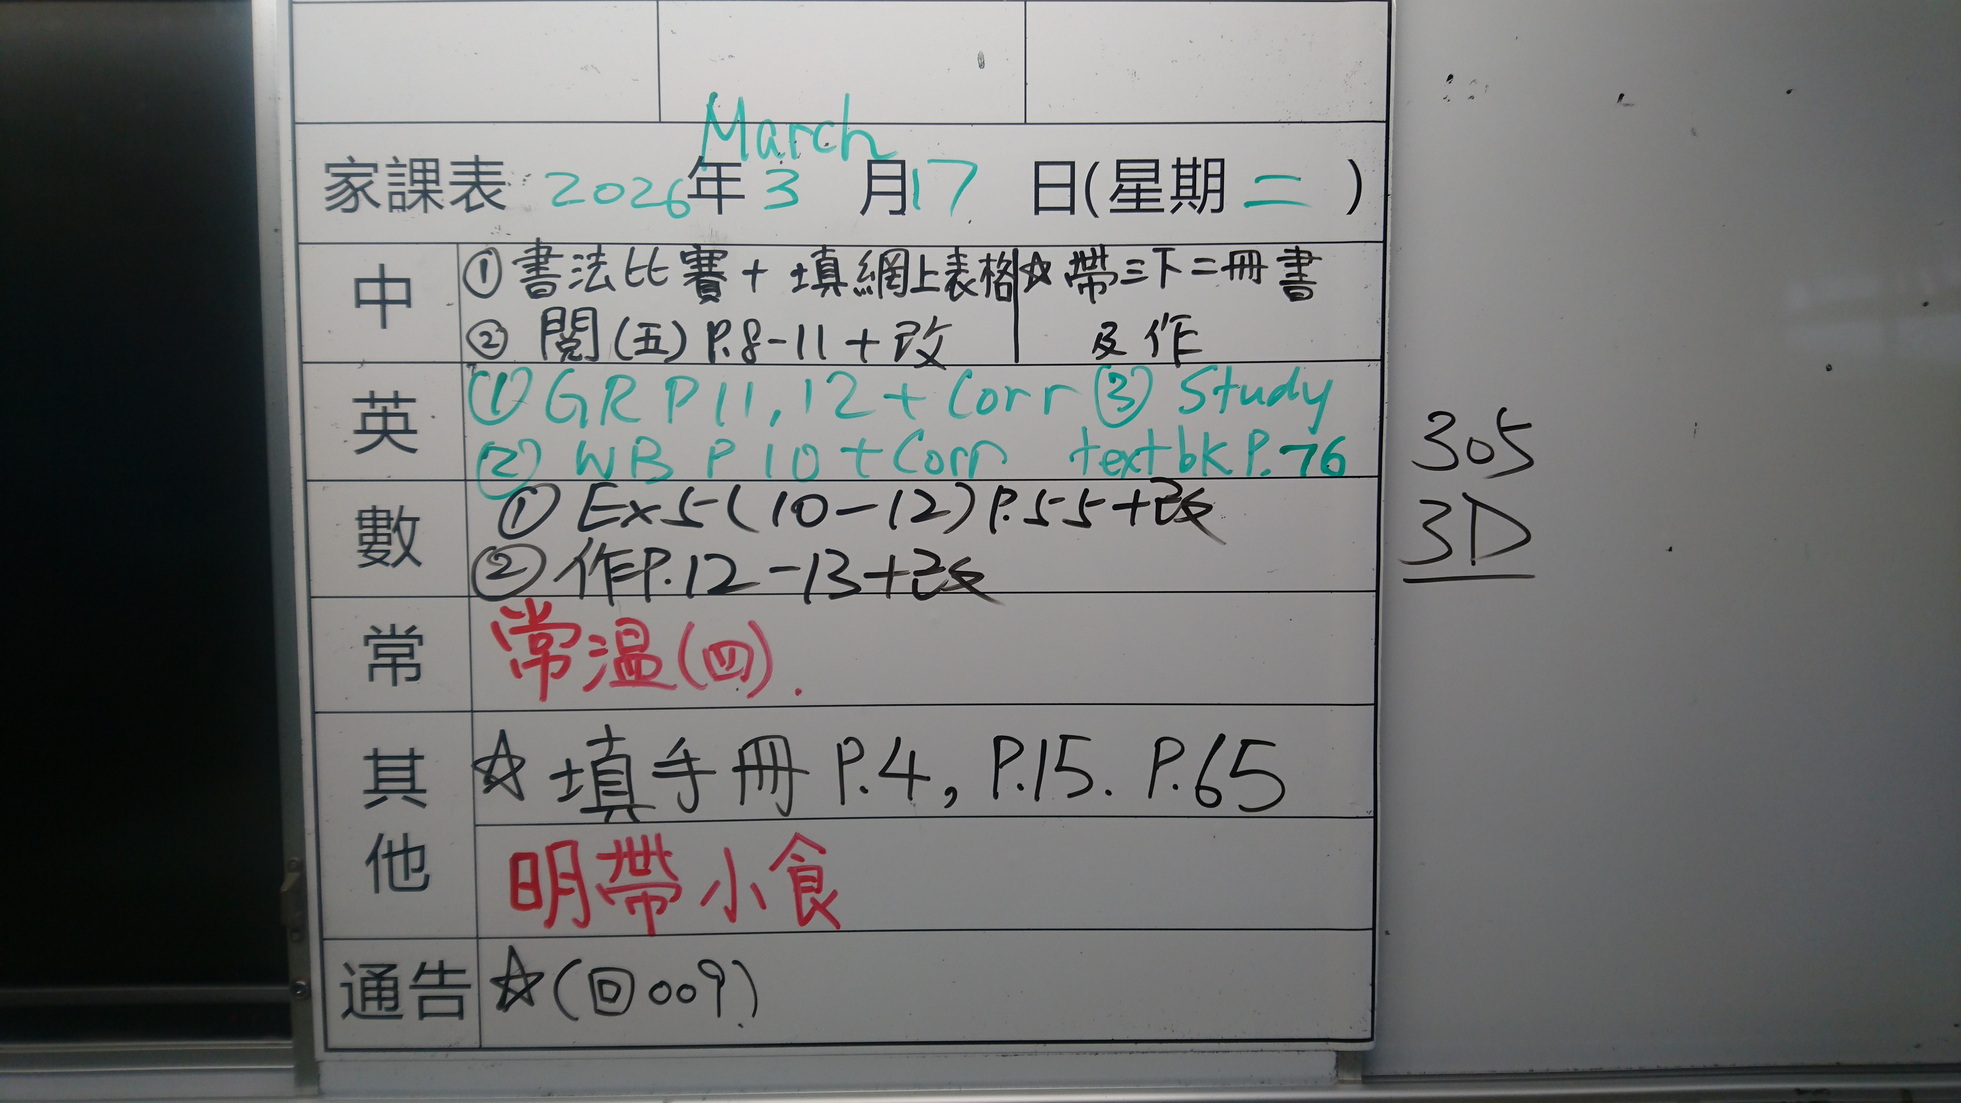 March
家課表 2026年3月17日(星期二)
中
①書法比賽+填網上表格
②閱(五)P.8-11+改
☆帶三下二冊書
及作
英
①GR P11,12+Corr
②WB P10+Corr
③Study
textbk P.76
數
①Ex5(10-12)P.55+改
②作P.12-13+改
常
常溫(四).
其他
☆填手冊P.4, P.15. P.65
明帶小食
通告
☆(回009)
305
3D